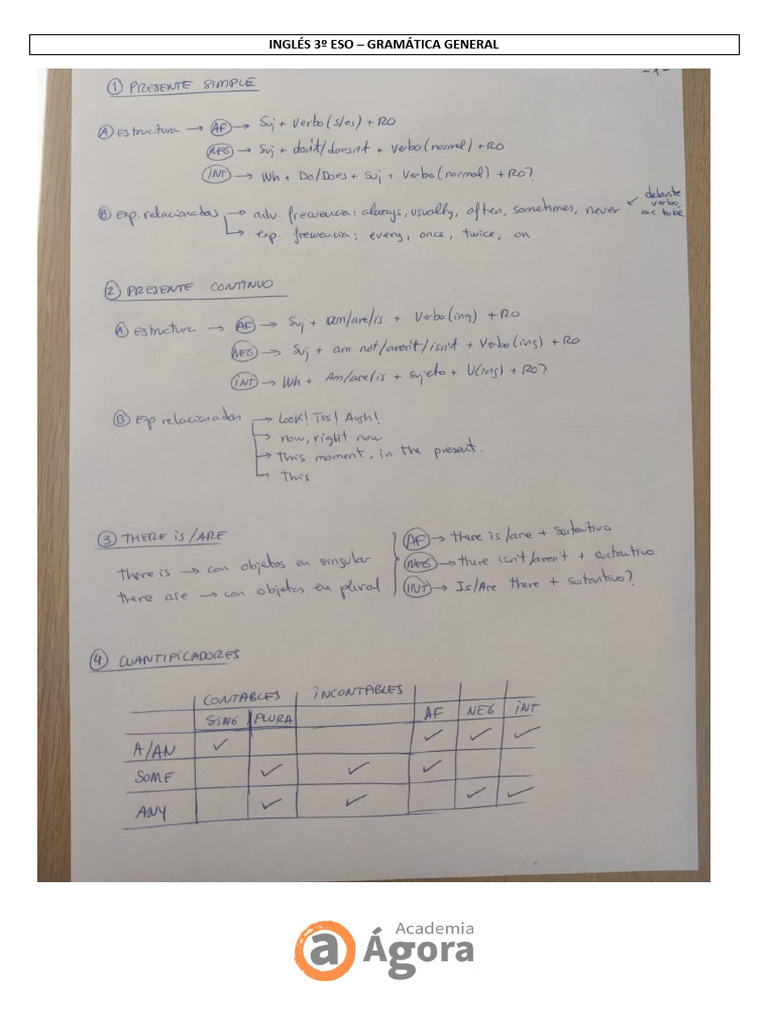 INGLÉS 3º ESO – GRAMÁTICA GENERAL
- 1 -
① PRESENTE SIMPLE
Ⓐ estructura → AF → Suj + Verbo (s/es) + RO
NEG → Suj + don't/doesn't + Verbo (normal) + RO
INT → Wh + Do/Does + Suj + Verbo (normal) + RO?
Ⓑ Exp. relacionadas → adv. frecuencia: always, usually, often, sometimes, never ← delante verbo, exc to be
→ exp. frecuencia: every, once, twice, on
② PRESENTE CONTINUO
Ⓐ Estructura → AF → Suj + am/are/is + Verbo (ing) + RO
NEG → Suj + am not/aren't/isn't + Verbo (ing) + RO
INT → Wh + Am/are/is + sujeto + V (ing) + RO?
Ⓑ Exp relacionadas → Look! Tss! Augh!
→ now, right now
→ this moment, in the present.
→ This
③ THERE IS/ARE
there is → con objetos en singular
there are → con objetos en plural
AF → there is/are + sustantivo
NEG → there isn't/aren't + sustantivo
INT → Is/Are there + sustantivo?
④ CUANTIFICADORES
CONTABLES INCONTABLES
SING PLURA AF NEG INT
A/AN ✓ ✓ ✓ ✓
SOME ✓ ✓ ✓
ANY ✓ ✓ ✓ ✓
a Academia
Ágora